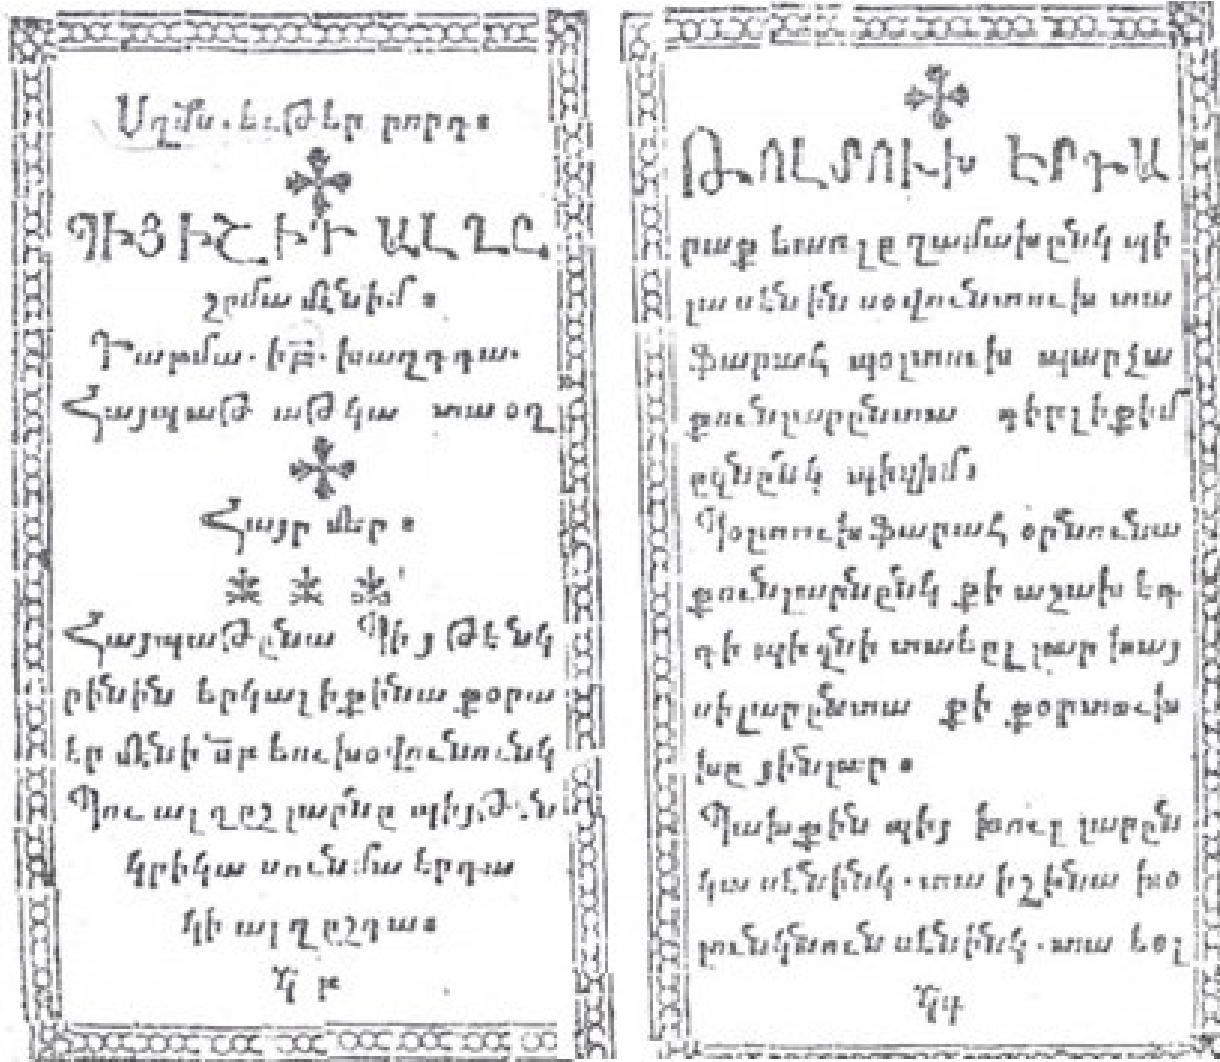 Սղմս. եւթեր րորդ։
ՊԻՅԻՇ ԻՒ ԱԼՂԸ
շըմա մէնիմ։
Դատմա. իա. խաղդդա.
Հայպաթ աթկա տա օղ
Հայր մեր։
Հայպաթընա Պիյ թէնկ
րինին երկալիքինա քօրա
եր մէնի
Պու ալղըշ լարնը պիյ թէն
կրիկա սունմա երդա
կի ալղըշդա։
ԹՈԼՄՈՒԽ ԷՐԴԱ
րաք եսսոլը ղամախընկ պի
լա սէնին սօվունտուխ տա
Ֆարահ պօլտուխ պարչա
քունլարընտա գիրլիքիմ
պիյիմ։
Պօլտուխ Ֆարահ օրնունա
քունլարնընկ քի աչախ էդ
դի պիզնի տա եըլ լար խայ
սիլարընտա քի քօրտուխ
խը յինլար։
Պախքին պիյ խուլ լարըն
կա սէնինկ. տա իշինա խօ
լունկնուն սէնինկ. տա եօլ